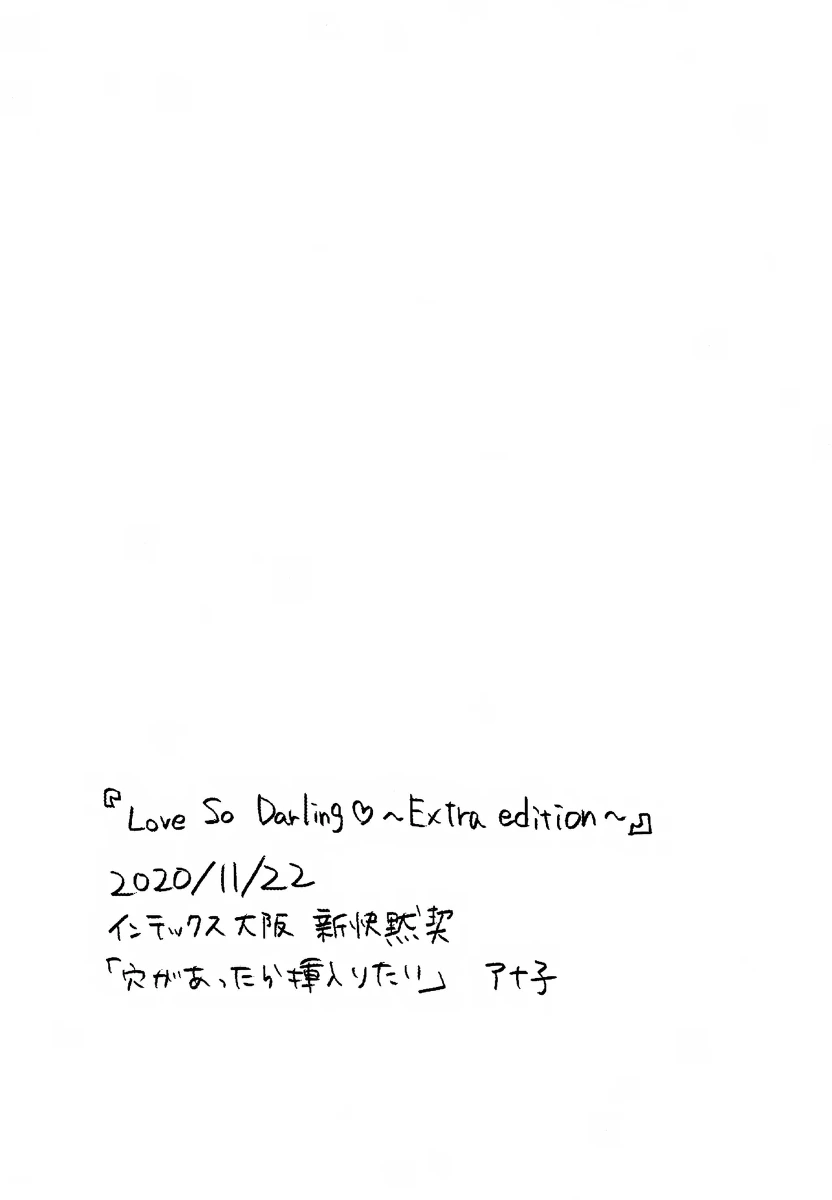 『Love So Darling♡～Extra edition～』
2020/11/22
インテックス大阪 新快黙契
「穴があったら挿入りたい」 アナ子